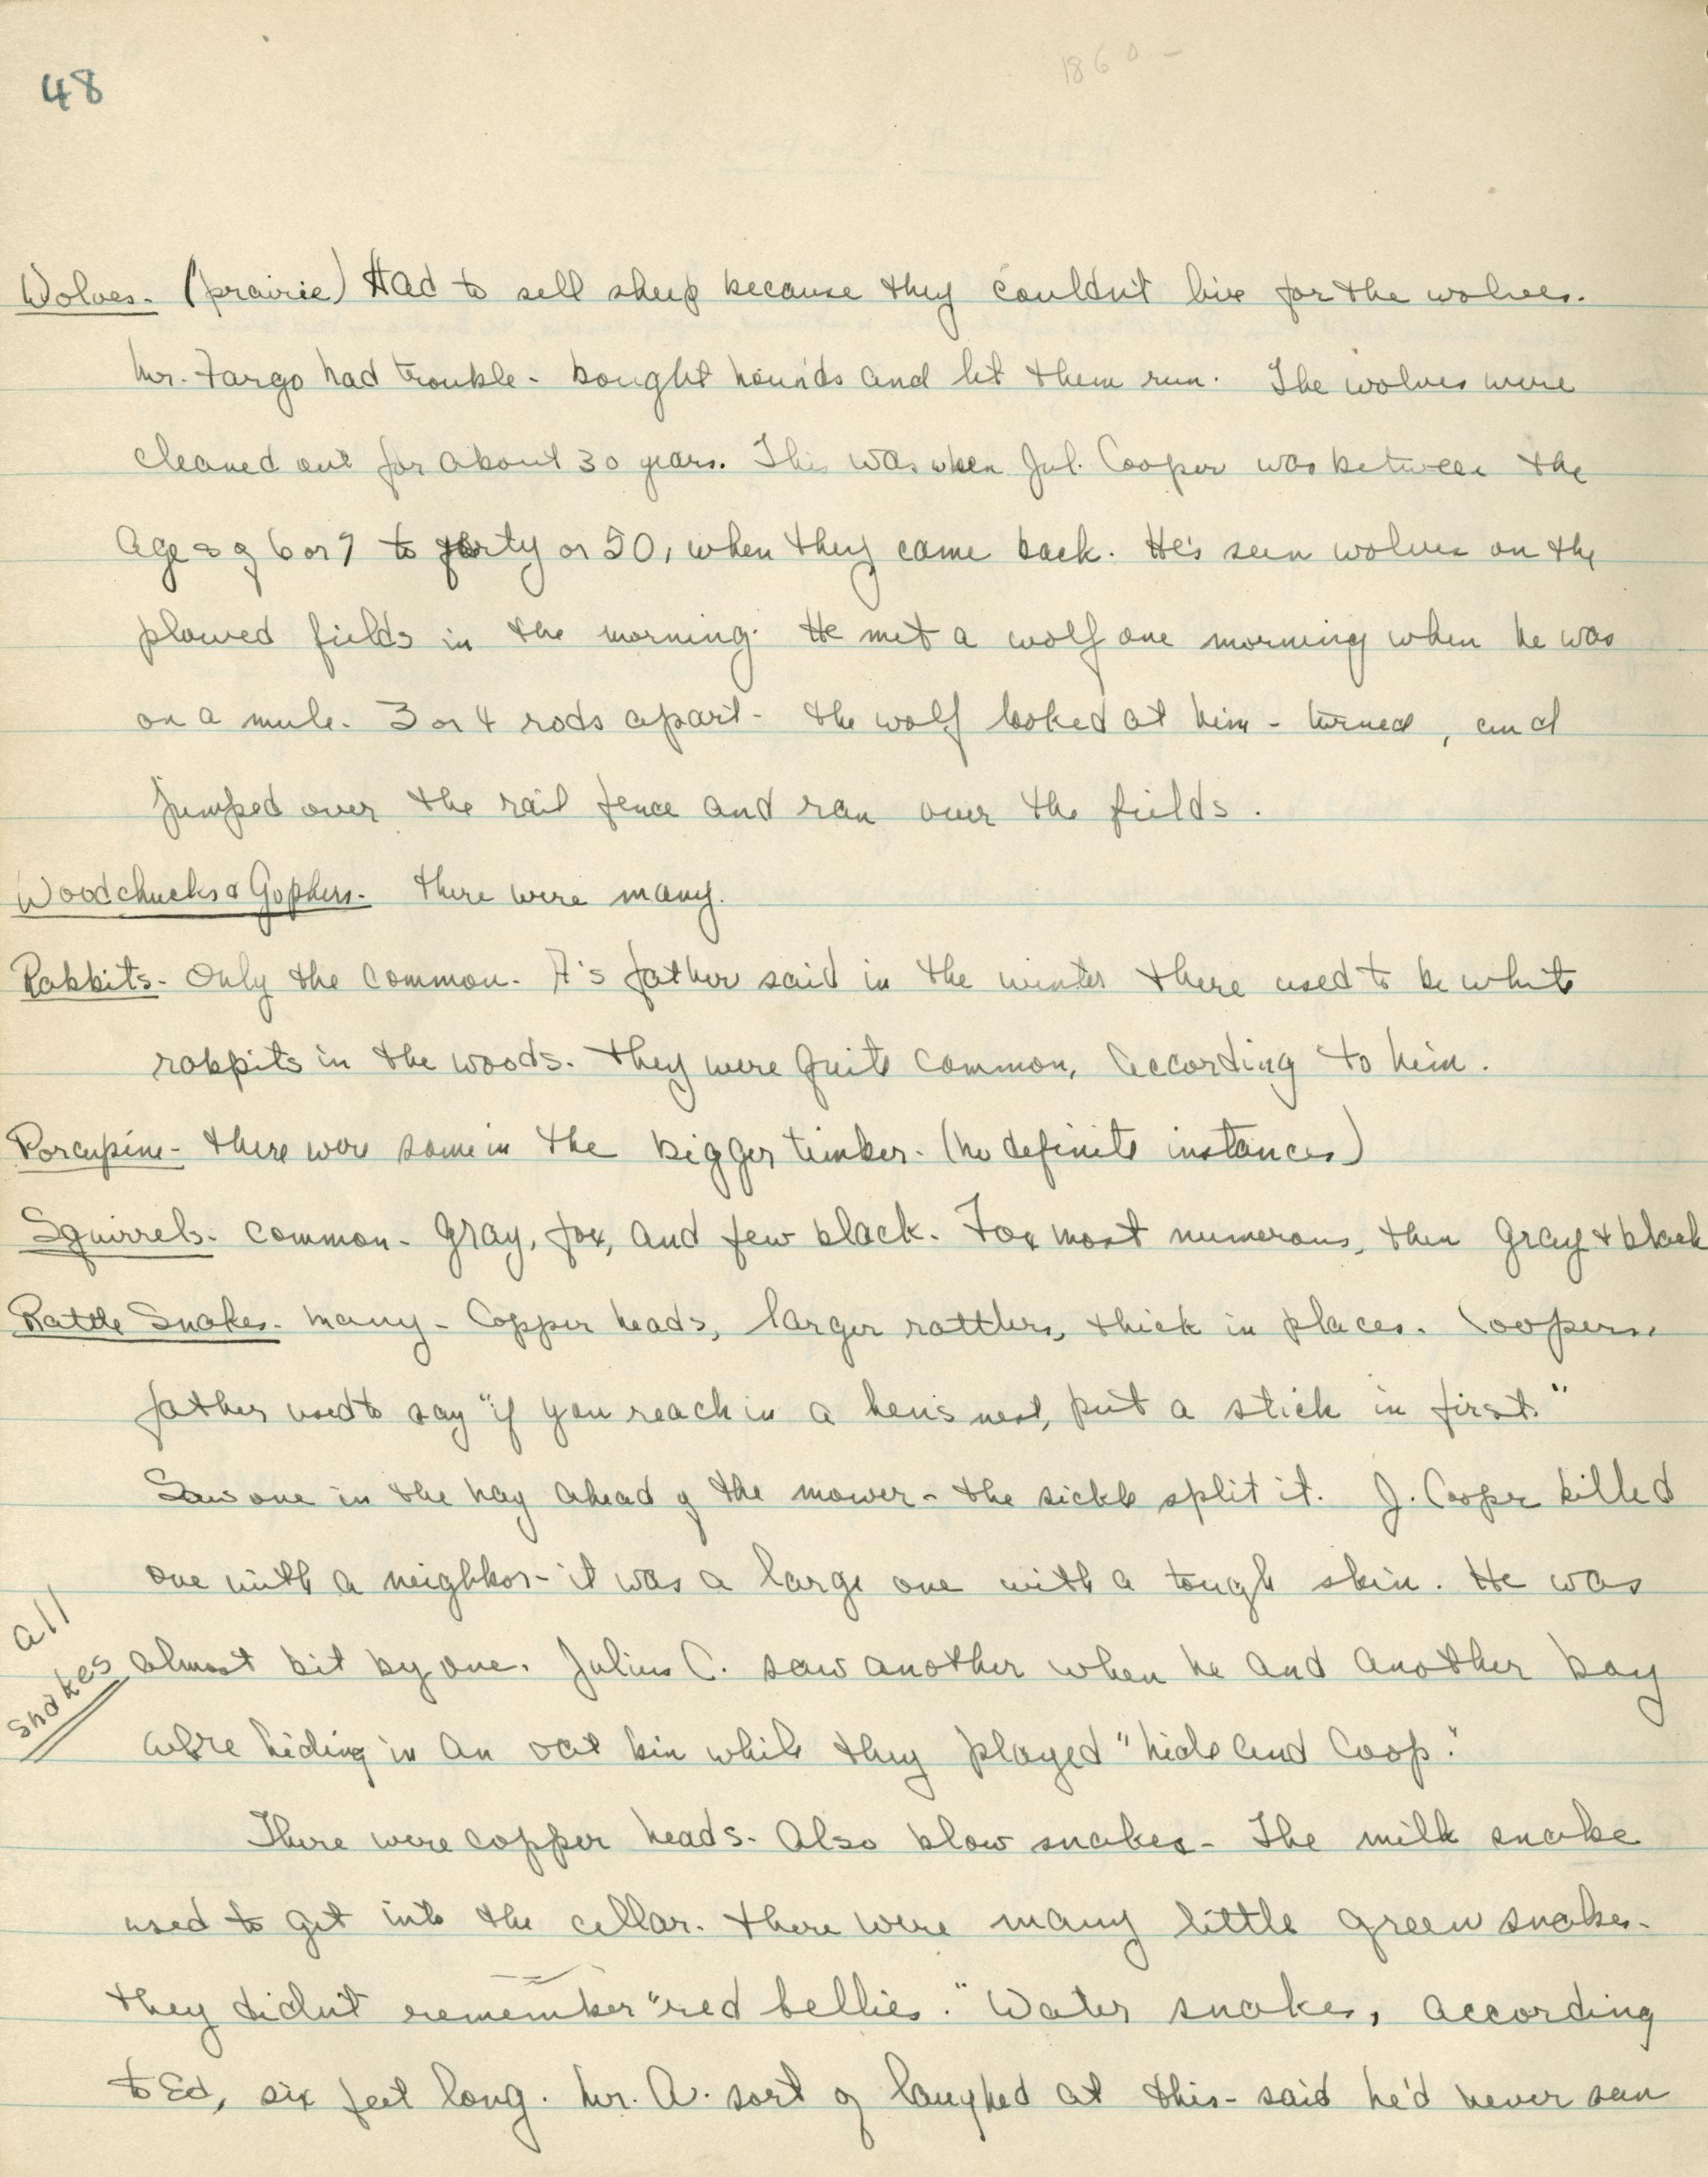 48
1860 -
Wolves. (prairie) Had to sell sheep because they couldn't live for the wolves.
Mr. Fargo had trouble - bought hounds and let them run. The wolves were
cleaned out for about 30 years. This was when Jul. Cooper was between the
ages of 6 or 7 to forty or 50, when they came back. He's seen wolves on the
plowed fields in the morning. He met a wolf one morning when he was
on a mule. 3 or 4 rods apart - the wolf looked at him - turned, and
jumped over the rail fence and ran over the fields.
Woodchucks & Gophers. There were many.
Rabbits - Only the common. A's father said in the winter there used to be white
rabbits in the woods. They were quite common, according to him.
Porcupine - There were some in the bigger timber. (no definite instances)
Squirrels. Common - gray, fox, and few black. Fox most numerous, then gray & black
Rattle Snakes. Many - Copper heads, larger rattlers, thick in places. Coopers,
father used to say "if you reach in a hen's nest, put a stick in first."
Saw one in the hay ahead of the mower - the sickle split it. J. Cooper killed
one with a neighbor - it was a large one with a tough skin. He was
all
snakes
almost bit by one. Julius C. saw another when he and another boy
were hiding in an oat bin while they played "hide and Coop."
There were copper heads. Also blow snakes - The milk snake
used to get into the cellar. There were many little green snakes.
they didn't remember "red bellies." Water snakes, according
to Ed, six feet long. Mr. A. sort of laughed at this - said he'd never seen